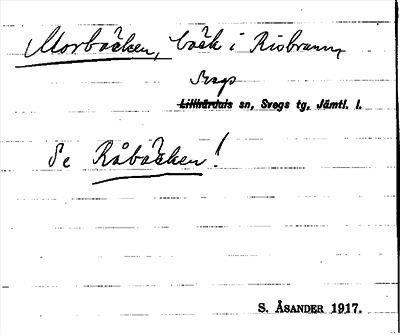 Morbäcken, bäck i Risbrunn
Svegs
Lillhärdals sn, Svegs tg, Jämtl. l.
Se Råbäcken!
S. ÅSANDER 1917.